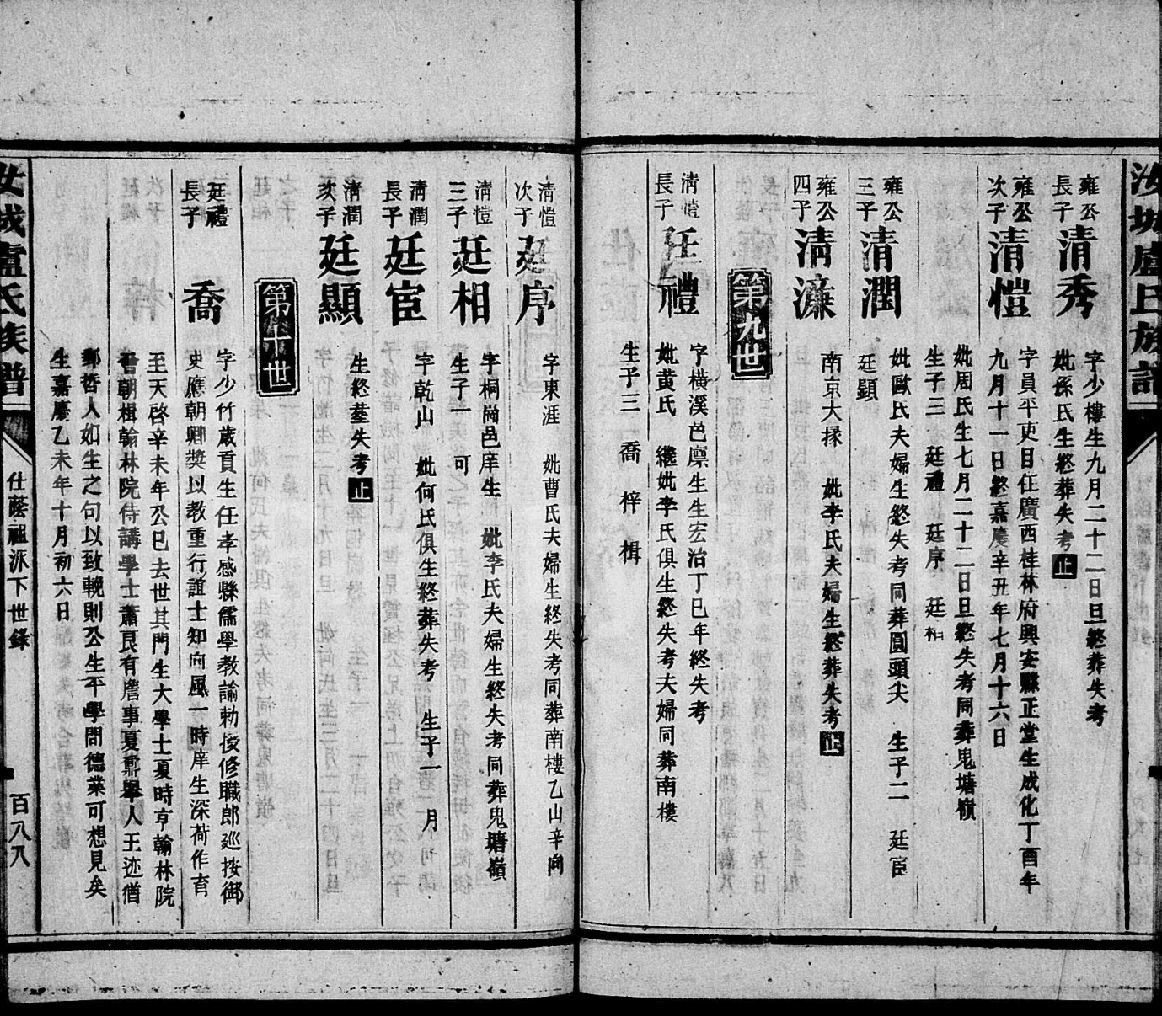 汝城盧氏族譜
雍公長子 清秀
字少樓生九月二十二日旦終葬失考
妣孫氏生終葬失考止
雍公次子 清愷
字員平吏目任廣西桂林府興安縣正堂生成化丁酉年
九月十一日終嘉慶辛丑年七月十六日
妣周氏生七月二十二日旦終失考同葬鬼塘嶺
生子三 廷禮 廷序 廷相
雍公三子 清潤
妣歐氏夫婦生終失考同葬圓頭尖 生子二 廷宦
廷顯
雍公四子 清濂
南京大掾 妣李氏夫婦生終葬失考止
第九世
清愷長子 廷禮
字橫溪邑廩生生宏治丁巳年終失考
妣黃氏 繼妣李氏俱生終失考夫婦同葬南樓
生子三 喬 梓 楫
清愷次子 廷序
字東涯 妣曹氏夫婦生終失考同葬南樓乙山辛向
清愷三子 廷相
字桐崗邑庠生 妣李氏夫婦生終失考同葬鬼塘嶺
生子一 可
清潤長子 廷宦
字乾山 妣何氏俱生終葬失考 生子一 月
清潤次子 廷顯
生終墓失考止
第十世
廷禮長子 喬
字少竹歲貢生任孝感縣儒學教諭勅授修職郎巡按御
史應朝卿獎以教重行誼士知向風一時庠生深荷作育
至天啓辛未年公已去世其門生大學士夏時亨翰林院
晉朝楫翰林院侍講學士蕭良有詹事夏 舉人王迹猶
鄭哲人如生之句以致輓則公生平學問德業可想見矣
生嘉慶乙未年十月初六日
汝城盧氏族譜
仕蔭祖派下世錄
百八八